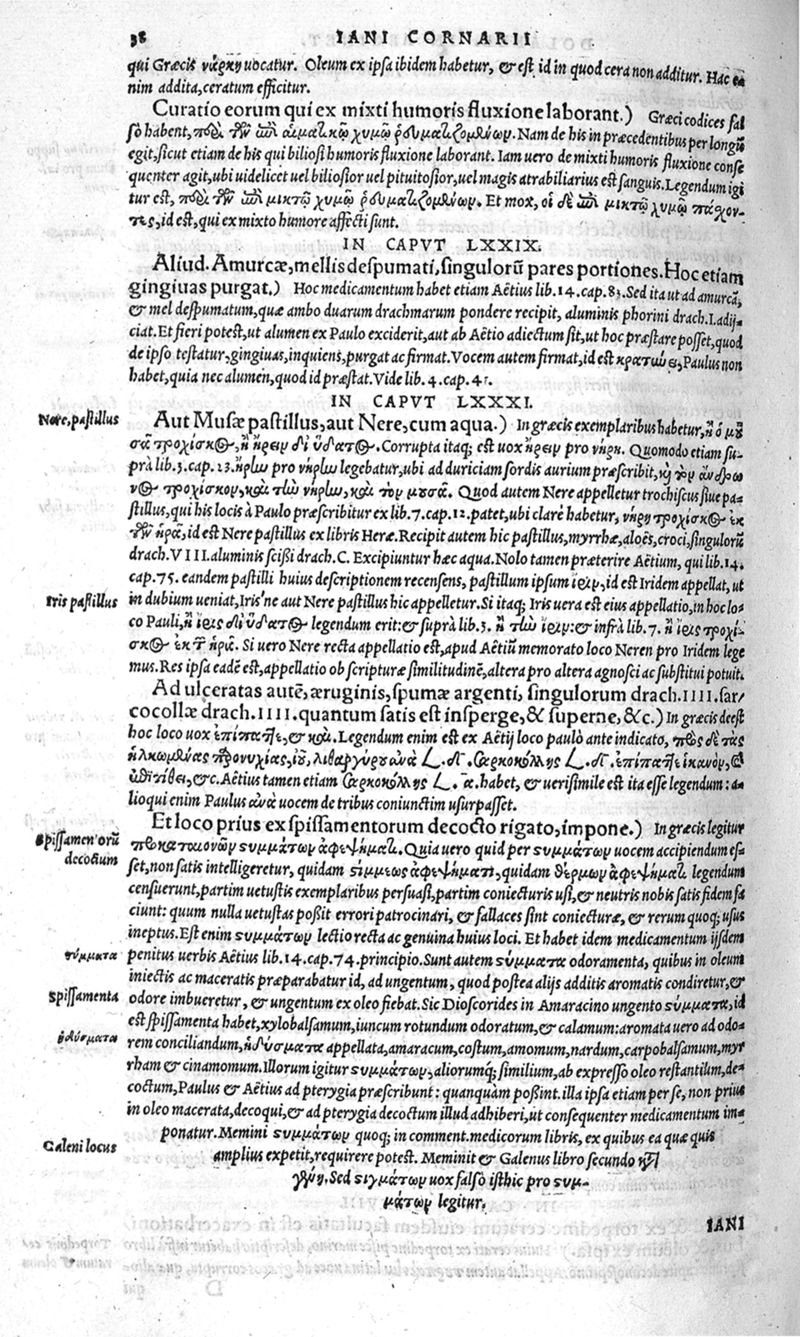 38 IANI CORNARII
qui Græcis νάρκη uocatur. Oleum ex ipsa ibidem habetur, & est id in quod cera non additur. Hac e⸗
nim addita, ceratum efficitur.
Curatio eorum qui ex mixti humoris fluxione laborant.) Græci codices fal
sò habent, χυμῶ ῥευματιζομένων. Nam de his in præcedentibus per longiù
egit, sicut etiam de his qui biliosi humoris fluxione laborant. Iam uero de mixti humoris fluxione conse
quenter agit, ubi uidelicet uel biliosior uel pituitosior, uel magis atrabiliarius est sanguis. Legendum igi
tur est, μικτῶ χυμῶ ῥευματιζομένων. Et mox, οἱ δὲ μικτῶ χυμῶ πάσχον⸗
τες, id est, qui ex mixto humore affecti sunt.
IN CAPVT LXXIX.
Aliud. Amurcæ, mellis despumati, singulorũ pares portiones. Hoc etiam
gingiuas purgat.) Hoc medicamentum habet etiam Aëtius lib. 14. cap. 83. Sed ita ut ad amurcã,
& mel despumatum, quæ ambo duarum drachmarum pondere recipit, aluminis phorini drach. I. adij⸗
ciat. Et fieri potest, ut alumen ex Paulo exciderit, aut ab Aëtio adiectum sit, ut hoc præstare posset, quod
de ipso testatur, gingiuas, inquiens, purgat ac firmat. Vocem autem firmat, id est κρατύνει, Paulus non
habet, quia nec alumen, quod id præstat. Vide lib. 4. cap.
IN CAPVT LXXXI.
Nere, pastillus
Aut Musæ pastillus, aut Nere, cum aqua.) In græcis exemplaribus habetur, ἢ ὁ μο
σᾶ τροχίσκος, ἢ ἤρειν δι᾽ ὕδατος. Corrupta itaq; est uox ἤρειν pro νήρη. Quomodo etiam su⸗
prà lib. 3. cap. 23. ἥρην pro νήρην legebatur, ubi ad duriciam sordis aurium præscribit, καὶ τὸν ἄνδρω
νος τροχίσκον, καὶ τὴν νήρην, καὶ τὸν μουσᾶ. Quod autem Nere appelletur trochiscus siue pa⸗
stillus, qui his locis à Paulo præscribitur ex lib. 7. cap. 12. patet, ubi clarè habetur, νήρη τροχίσκος ἐκ
τῶν ἡρᾶ, id est Nere pastillus ex libris Heræ. Recipit autem hic pastillus, myrrhæ, aloës, croci, singulorũ
drach. VIII. aluminis scißi drach. C. Excipiuntur hæc aqua. Nolo tamen præterire Aëtium, qui lib. 14.
cap. 75. eandem pastilli huius descriptionem recensens, pastillum ipsum ἶριν, id est Iridem appellat, ut
Iris pastillus
in dubium ueniat, Iris'ne aut Nere pastillus hic appelletur. Si itaq; Iris uera est eius appellatio, in hoc lo⸗
co Pauli, ἢ ἶρις δι᾽ ὕδατος legendum erit: & suprà lib. 3. ἢ τὴν ἶριν: & infrà lib. 7. ἢ ἶρις τροχί⸗
σκος ἐκ τ ἡρᾶ. Si uero Nere recta appellatio est, apud Aëtiũ memorato loco Neren pro Iridem lege
mus. Res ipsa eadẽ est, appellatio ob scripturæ similitudinẽ, altera pro altera agnosci ac substitui potuit.
Ad ulceratas autẽ, æruginis, spumæ argenti, singulorum drach. IIII. sar⸗
cocollæ drach. IIII. quantum satis est insperge, & superne, &c.) In græcis deest
hoc loco uox ἐπίπαττε, & καὶ. Legendum enim est ex Aëtij loco paulò ante indicato, πρὸς δὲ τὰς
ἡλκωμένας, ἰοῦ, λιθαργύρου ἀνὰ . δ. σαρκοκόλλης . δ. ἐπίπαττε ἱκανὸν,
&c. Aëtius tamen etiam σαρκοκόλλης . α. habet, & uerisimile est ita esse legendum: a⸗
lioqui enim Paulus ἀνὰ uocem de tribus coniunctim usurpasset.
Spissamen'orũ
decoctum
Et loco prius ex spissamentorum decocto rigato, impone.) In græcis legitur
συμμάτων ἀφεψήματι. Quia uero quid per συμμάτων uocem accipiendum es⸗
set, non satis intelligeretur, quidam ἀφεψήματι, quidam θέρμων ἀφεψήματι legendum
censuerunt, partim uetustis exemplaribus persuasi, partim coniecturis usi, & neutris nobis satis fidem fa
ciunt: quum nulla uetustas poßit errori patrocinari, & fallaces sint coniecturæ, & rerum quoq; usus
ineptus. Est enim συμμάτων lectio recta ac genuina huius loci. Et habet idem medicamentum ijsdem
σύμματα
penitus uerbis Aëtius lib. 14. cap. 74. principio. Sunt autem σύμματα odoramenta, quibus in oleum
iniectis ac maceratis præparabatur id, ad ungentum, quod postea alijs additis aromatis condiretur, &
Spissamenta
odore imbueretur, & ungentum ex oleo fiebat. Sic Dioscorides in Amaracino ungento σύμματα, id
est spissamenta habet, xylobalsamum, iuncum rotundum odoratum, & calamum: aromata uero ad odo⸗
ἡδύσματα
rem conciliandum, ἡδύσματα appellata, amaracum, costum, amomum, nardum, carpobalsamum, myr
rham & cinamomum. Illorum igitur συμμάτων, aliorumq; similium, ab expresso oleo restantium, de⸗
coctum, Paulus & Aëtius ad pterygia præscribunt: quanquam poßint. illa ipsa etiam per se, non prius
in oleo macerata, decoqui, & ad pterygia decoctum illud adhiberi, ut consequenter medicamentum im⸗
Galeni locus
ponatur. Memini συμμάτων quoq; in comment. medicorum libris, ex quibus ea quæ quis
amplius expetit, requirere potest. Meminit & Galenus libro secundo
Sed σιγμάτων uox falsò isthic pro συμ⸗
μάτων legitur.
IANI